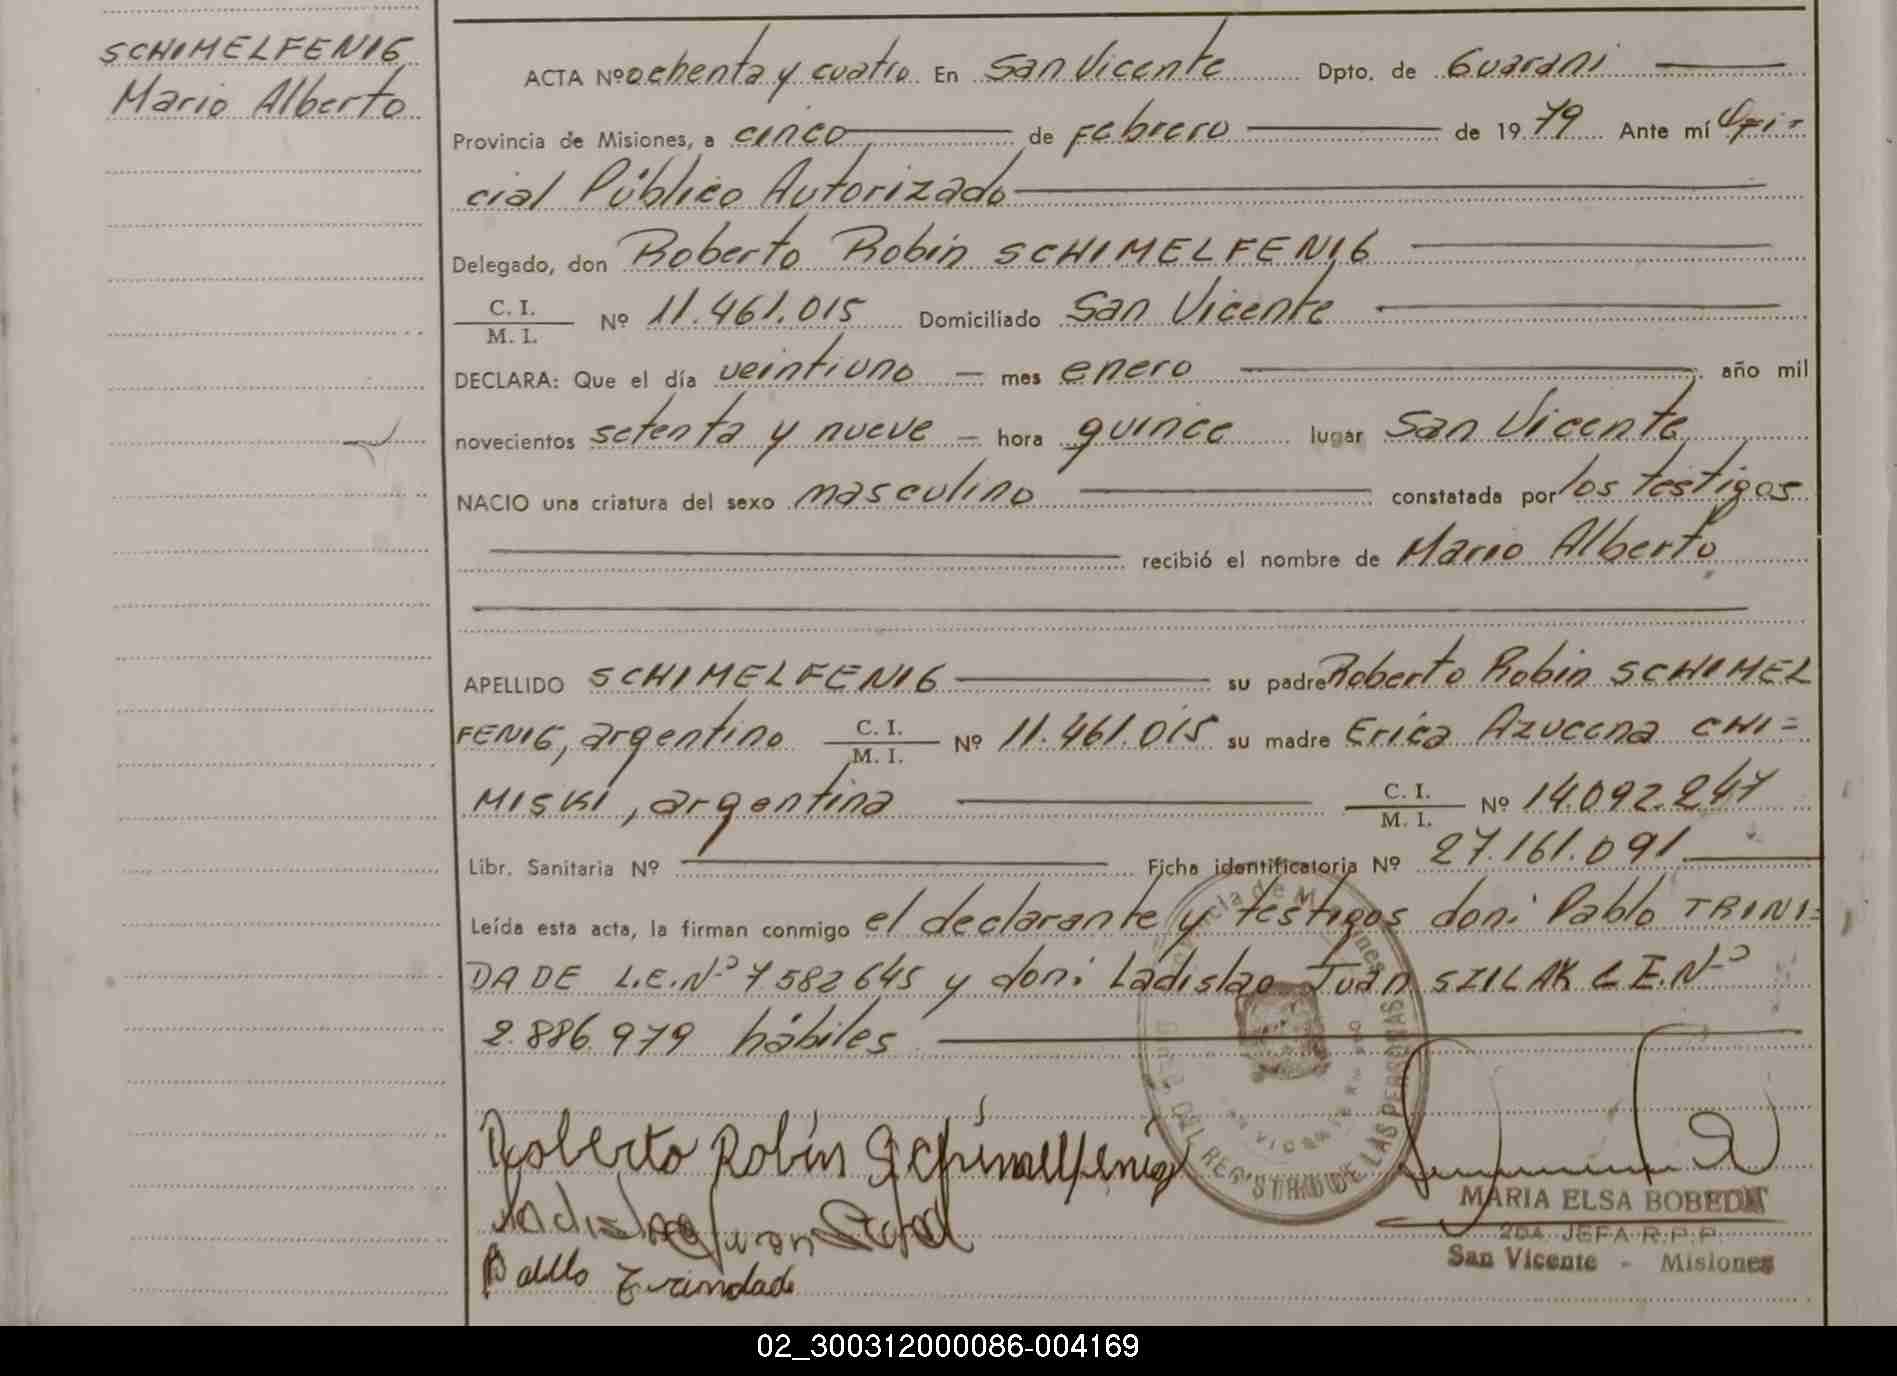 SCHIMELFENIG
Mario Alberto
ACTA Nº ochenta y cuatro En San Vicente Dpto. de Guarani
Provincia de Misiones, a cinco de Febrero de 1979 Ante mí Ofi-
cial Público Autorizado
Delegado, don Roberto Robin SCHIMELFENIG
C. I.
M. I.
Nº 11.461.015 Domiciliado San Vicente
DECLARA: Que el día veintiuno - mes enero año mil
novecientos setenta y nueve - hora quince lugar San Vicente
NACIO una criatura del sexo masculino constatada por los testigos
recibió el nombre de Mario Alberto
APELLIDO SCHIMELFENIG su padre Roberto Robin SCHIMEL
FENIG, argentino C. I. M. I. Nº 11.461.015 su madre Erica Azucena CHI=
MISKI, argentina C. I. M. I. Nº 14.092.247
Libr. Sanitaria Nº Ficha identificatoria Nº 27.161.091
Leída esta acta, la firman conmigo el declarante y testigos don: Pablo TRINI=
DADE L.E.Nº 7582645 y don: Ladislao Juan SZILAK L E.Nº
2.886.979 hábiles
Roberto Robin Schimelfenig
Trindade
REGISTRO DE LAS PERSONAS
MARIA ELSA BOBEDA
2DA JEFA R.P.P.
San Vicente - Misiones
02_300312000086-004169